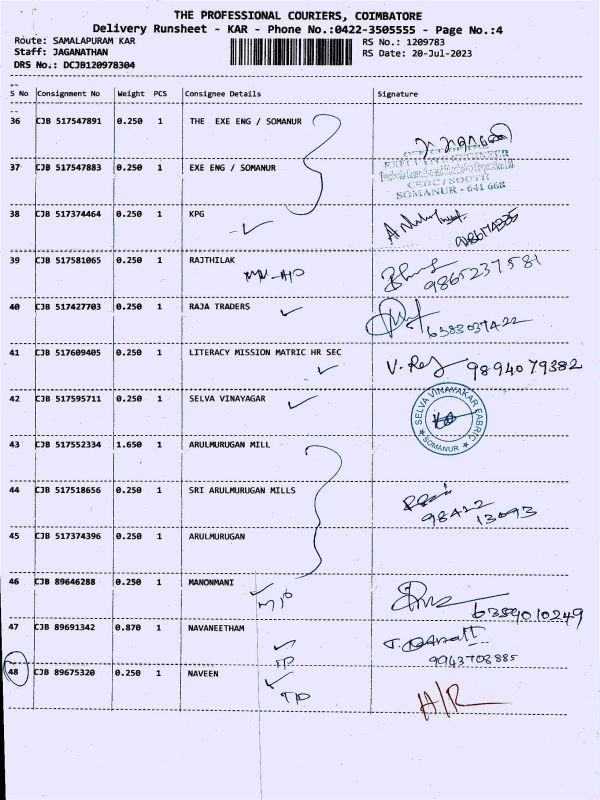 THE PROFESSIONAL COURIERS, COIMBATORE
Delivery Runsheet - KAR - Phone No.:0422-3505555 - Page No.:4
Route: SAMALAPURAM KAR RS No.: 1209783
Staff: JAGANATHAN RS Date: 20-Jul-2023
DRS No.: DCJB120978304
S No Consignment No Weight PCS Consignee Details Signature
36 CJB 517547891 0.250 1 THE EXE ENG / SOMANUR
37 CJB 517547883 0.250 1 EXE ENG / SOMANUR
SOMANUR - 641 668
38 CJB 517374464 0.250 1 KPG
39 CJB 517581065 0.250 1 RAJTHILAK
9865237581
40 CJB 517427703 0.250 1 RAJA TRADERS
6383037422
41 CJB 517609405 0.250 1 LITERACY MISSION MATRIC HR SEC
9894079382
42 CJB 517595711 0.250 1 SELVA VINAYAGAR
SELVA VINAYAKAR FABRIC
SOMANUR
43 CJB 517552334 1.650 1 ARULMURUGAN MILL
44 CJB 517518656 0.250 1 SRI ARULMURUGAN MILLS
98422
13093
45 CJB 517374396 0.250 1 ARULMURUGAN
46 CJB 89646288 0.250 1 MANONMANI
6384010249
47 CJB 89691342 0.870 1 NAVANEETHAM
TP
9943708885
48 CJB 89675320 0.250 1 NAVEEN
TP
H/R